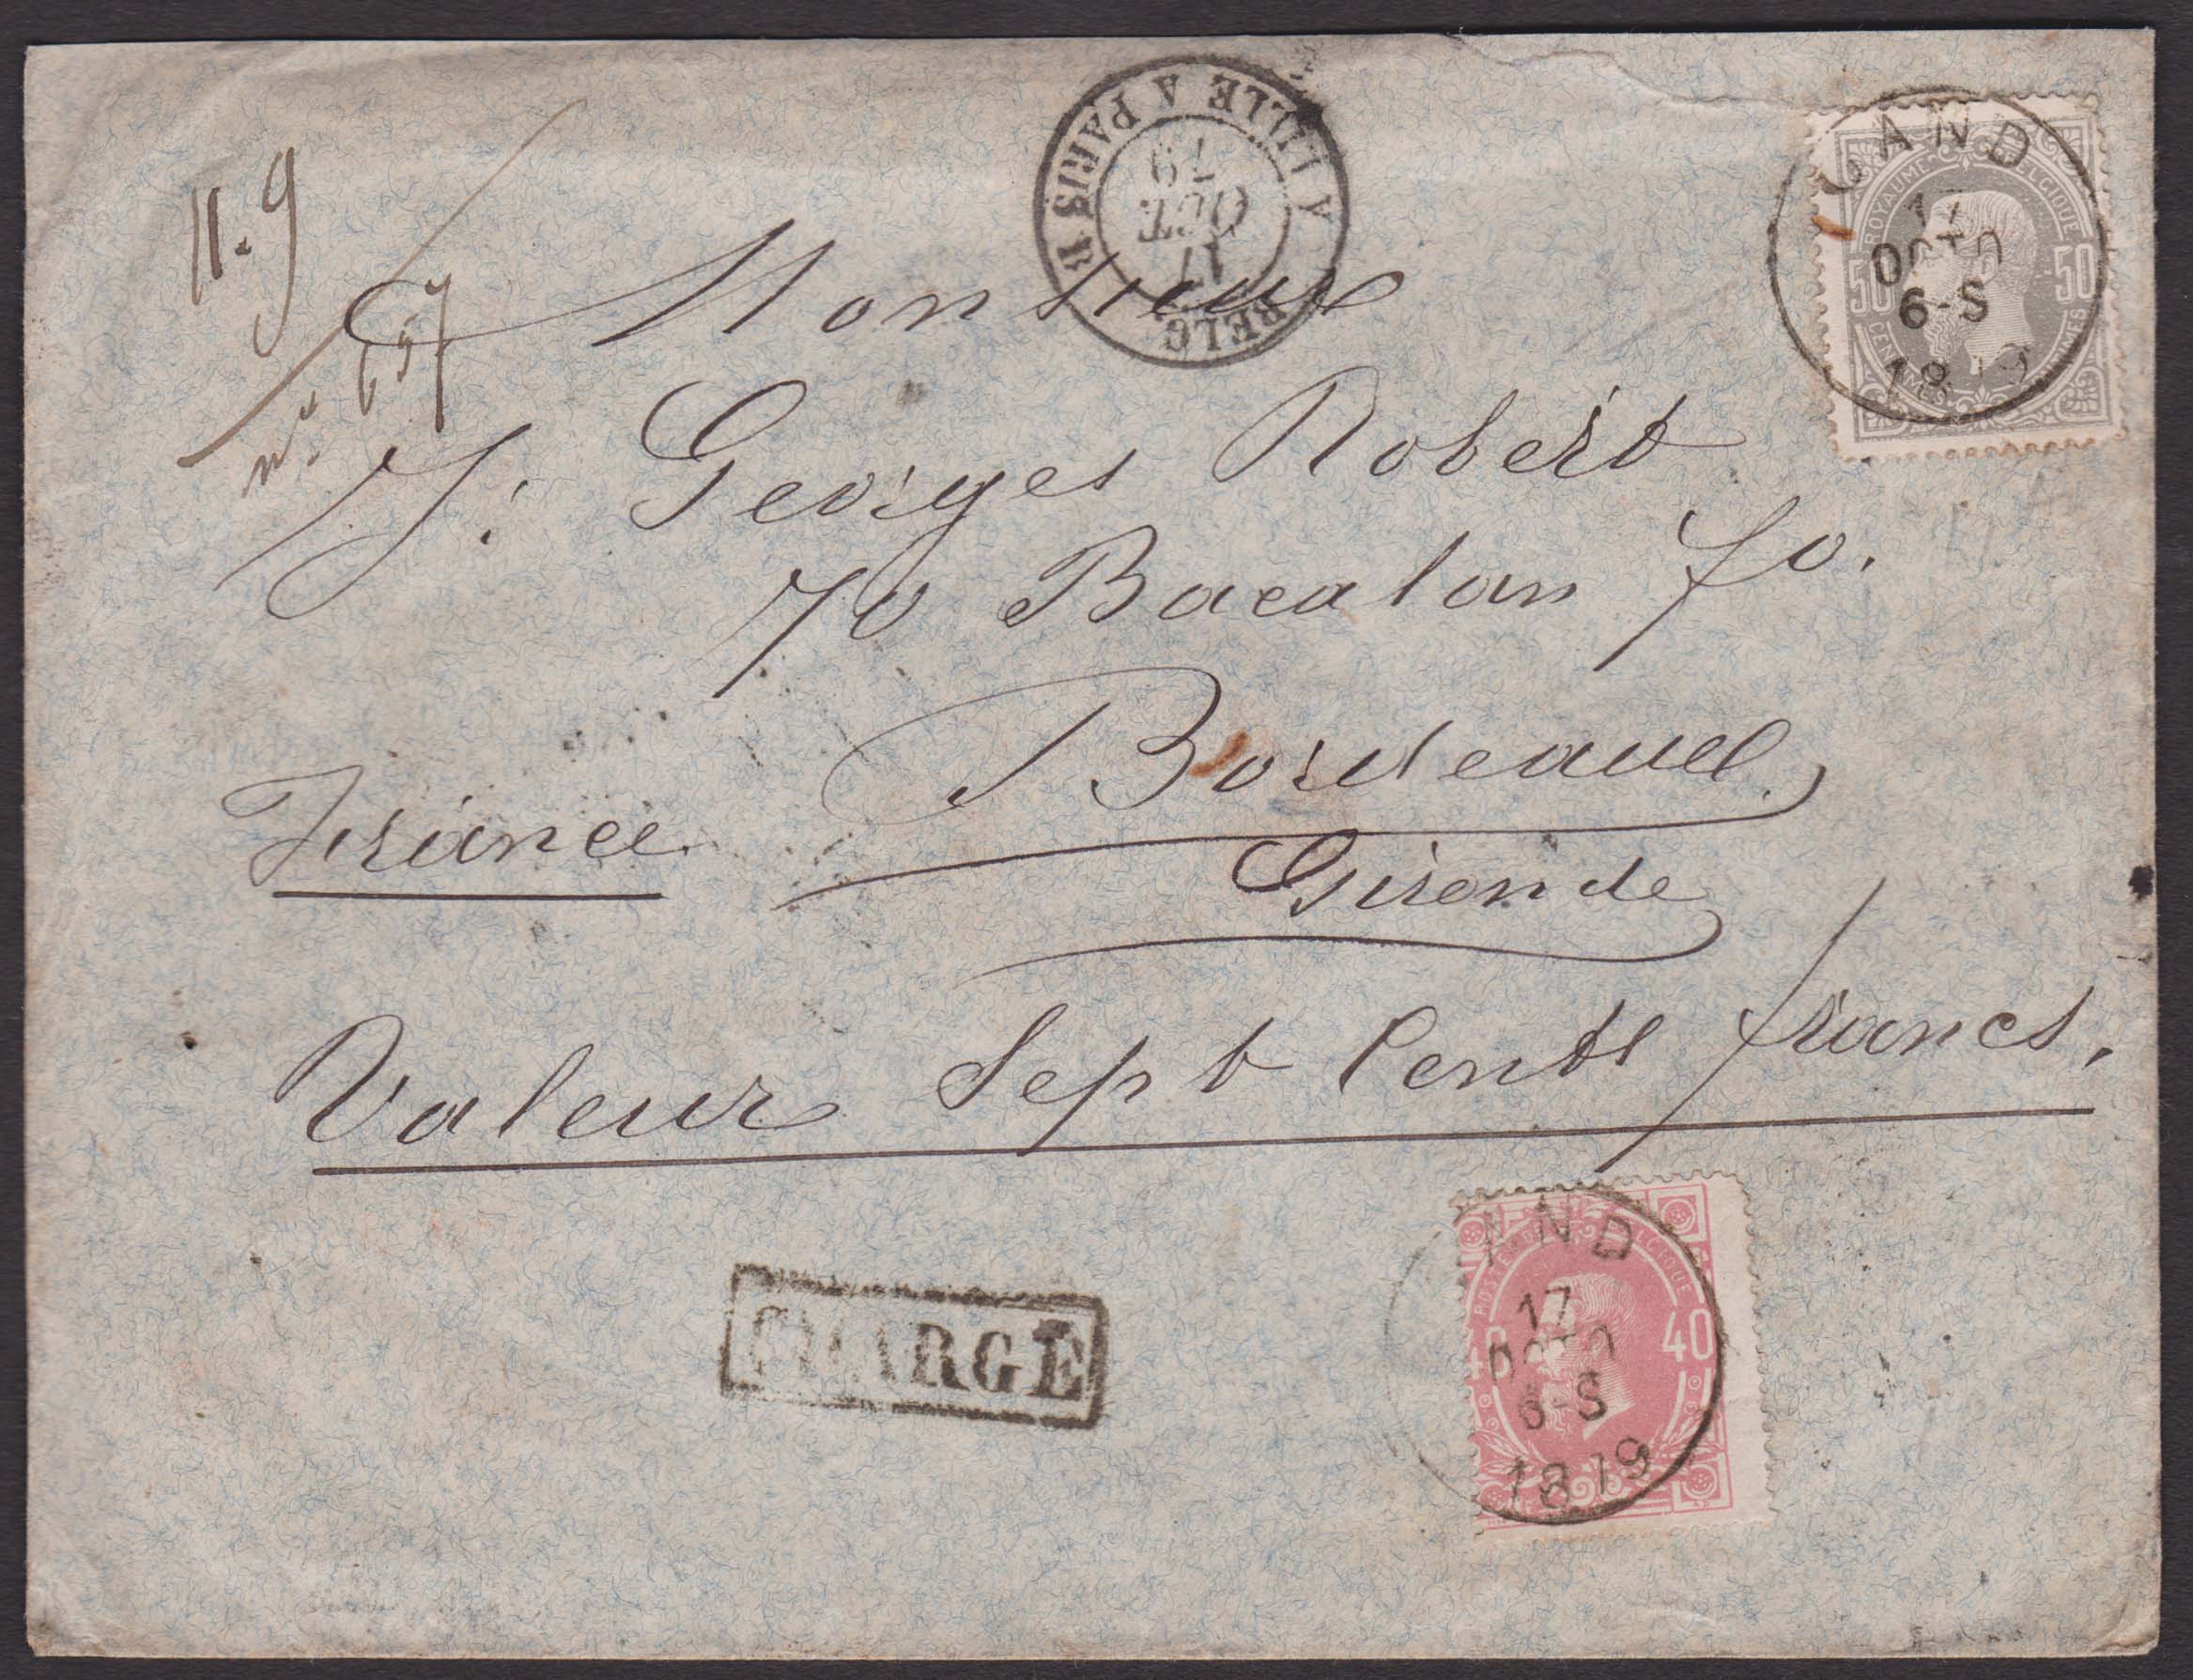 11-9
nº 657
BELG. A LILLE A PARIS
17
OCT
79
GAND
17
OCTO
6-S
1879
ROYAUME BELGIQUE
50 50
CENTIMES
Monsieur
J. Georges Robert
70 Bacalan 70.
Bordeaux
France
Gironde
Valeur Sept Cents francs.
CHARGÉ
AND
17
OCTO
6-S
1879
POSTES BELGIQUE
40 40